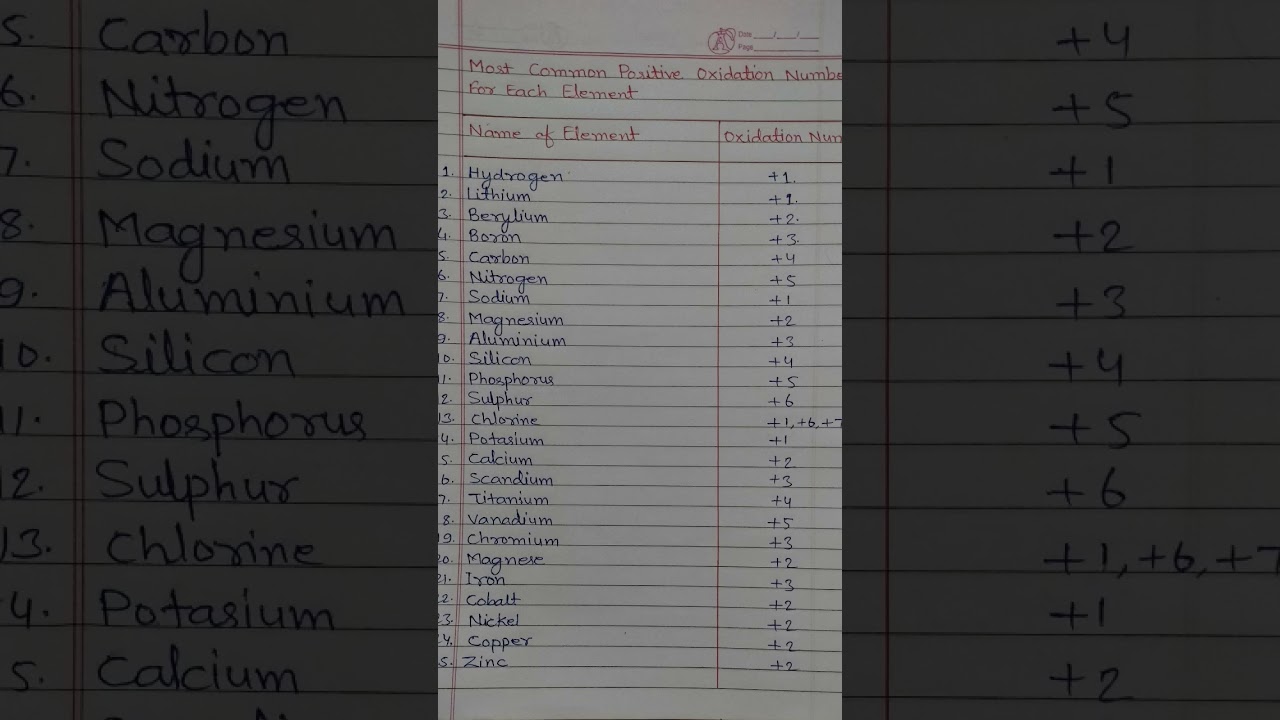 Date __/__/__
Page
Most Common Positive Oxidation Numbe
For Each Element
Name of Element Oxidation Num
1. Hydrogen +1.
2. Lithium +1.
3. Berylium +2.
4. Boron +3.
5. Carbon +4
6. Nitrogen +5
7. Sodium +1
8. Magnesium +2
9. Aluminium +3
10. Silicon +4
11. Phosphorus +5
2. Sulphur +6
13. Chlorine +1, +6, +7
4. Potasium +1
5. Calcium +2
6. Scandium +3
7. Titanium +4
8. Vanadium +5
19. Chromium +3
20. Magnese +2
21. Iron +3
2. Cobalt +2
3. Nickel +2
4. Copper +2
5. Zinc +2
5. Carbon +4
6. Nitrogen +5
7. Sodium +1
8. Magnesium +2
9. Aluminium +3
10. Silicon +4
11. Phosphorus +5
2. Sulphur +6
13. Chlorine +1, +6, +7
4. Potasium +1
5. Calcium +2